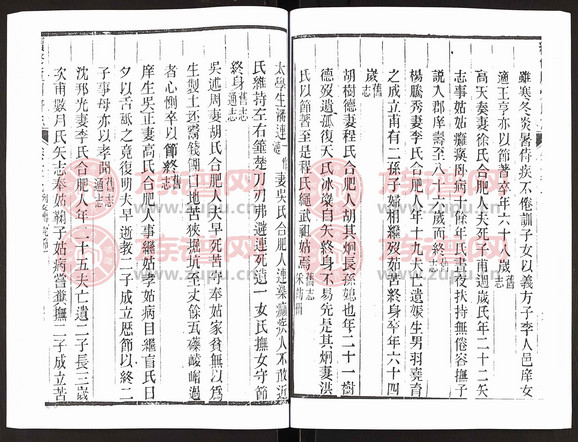 雖寒冬炎暑侍疾不倦訓子女以義方子季人邑庠女
適王亨亦以節著卒年六十八歲舊志
高天奏妻徐氏合肥人夫死子甫週歲氏年二十二矢
志事姑姑癱瘓周病十餘年氏晝夜扶持無倦容撫子
說入郡庠壽至八十六歲而終舊志
楊騰秀妻李氏合肥人年十九夫亡遺娠生男羽堯育
之成立甫有二孫子婦相繼歿茹苦終身卒年六十四
歲舊志
胡樹德妻程氏合肥人胡其炯長孫媳也年二十一樹
德歿遺孤復夭氏冰蘗自矢終身不易先是其炯妻洪
氏以節著至是程氏繩武祖姑焉舊志
太學生潘連一妻吳氏合肥人連染癲疾人不敢近
氏維持左右鍾楚刀刃弗避連死遺一女氏撫女守節
終身舊志通志
吳述周妻胡氏合肥人夫早死苦守奉姑家貧無以為
生製土坯器錢餬口地苦狹掘坑至丈餘瓦礫崚嶒過
者心惻卒以節終舊志
庠生吳正妻高氏合肥人事繼姑孝姑病目繼盲氏日
夕以舌舐之竟復明夫早逝教子成立歷節以終二
子事母亦以孝聞舊志通志
沈邦光妻李氏合肥人年二十五夫亡遺二子長三歲
次甫數月氏矢志奉姑鞠子姑病嘗糞撫二子成立苦
www.zupu.cn
www.zupu.cn
www.zupu.cn
www.zupu.cn